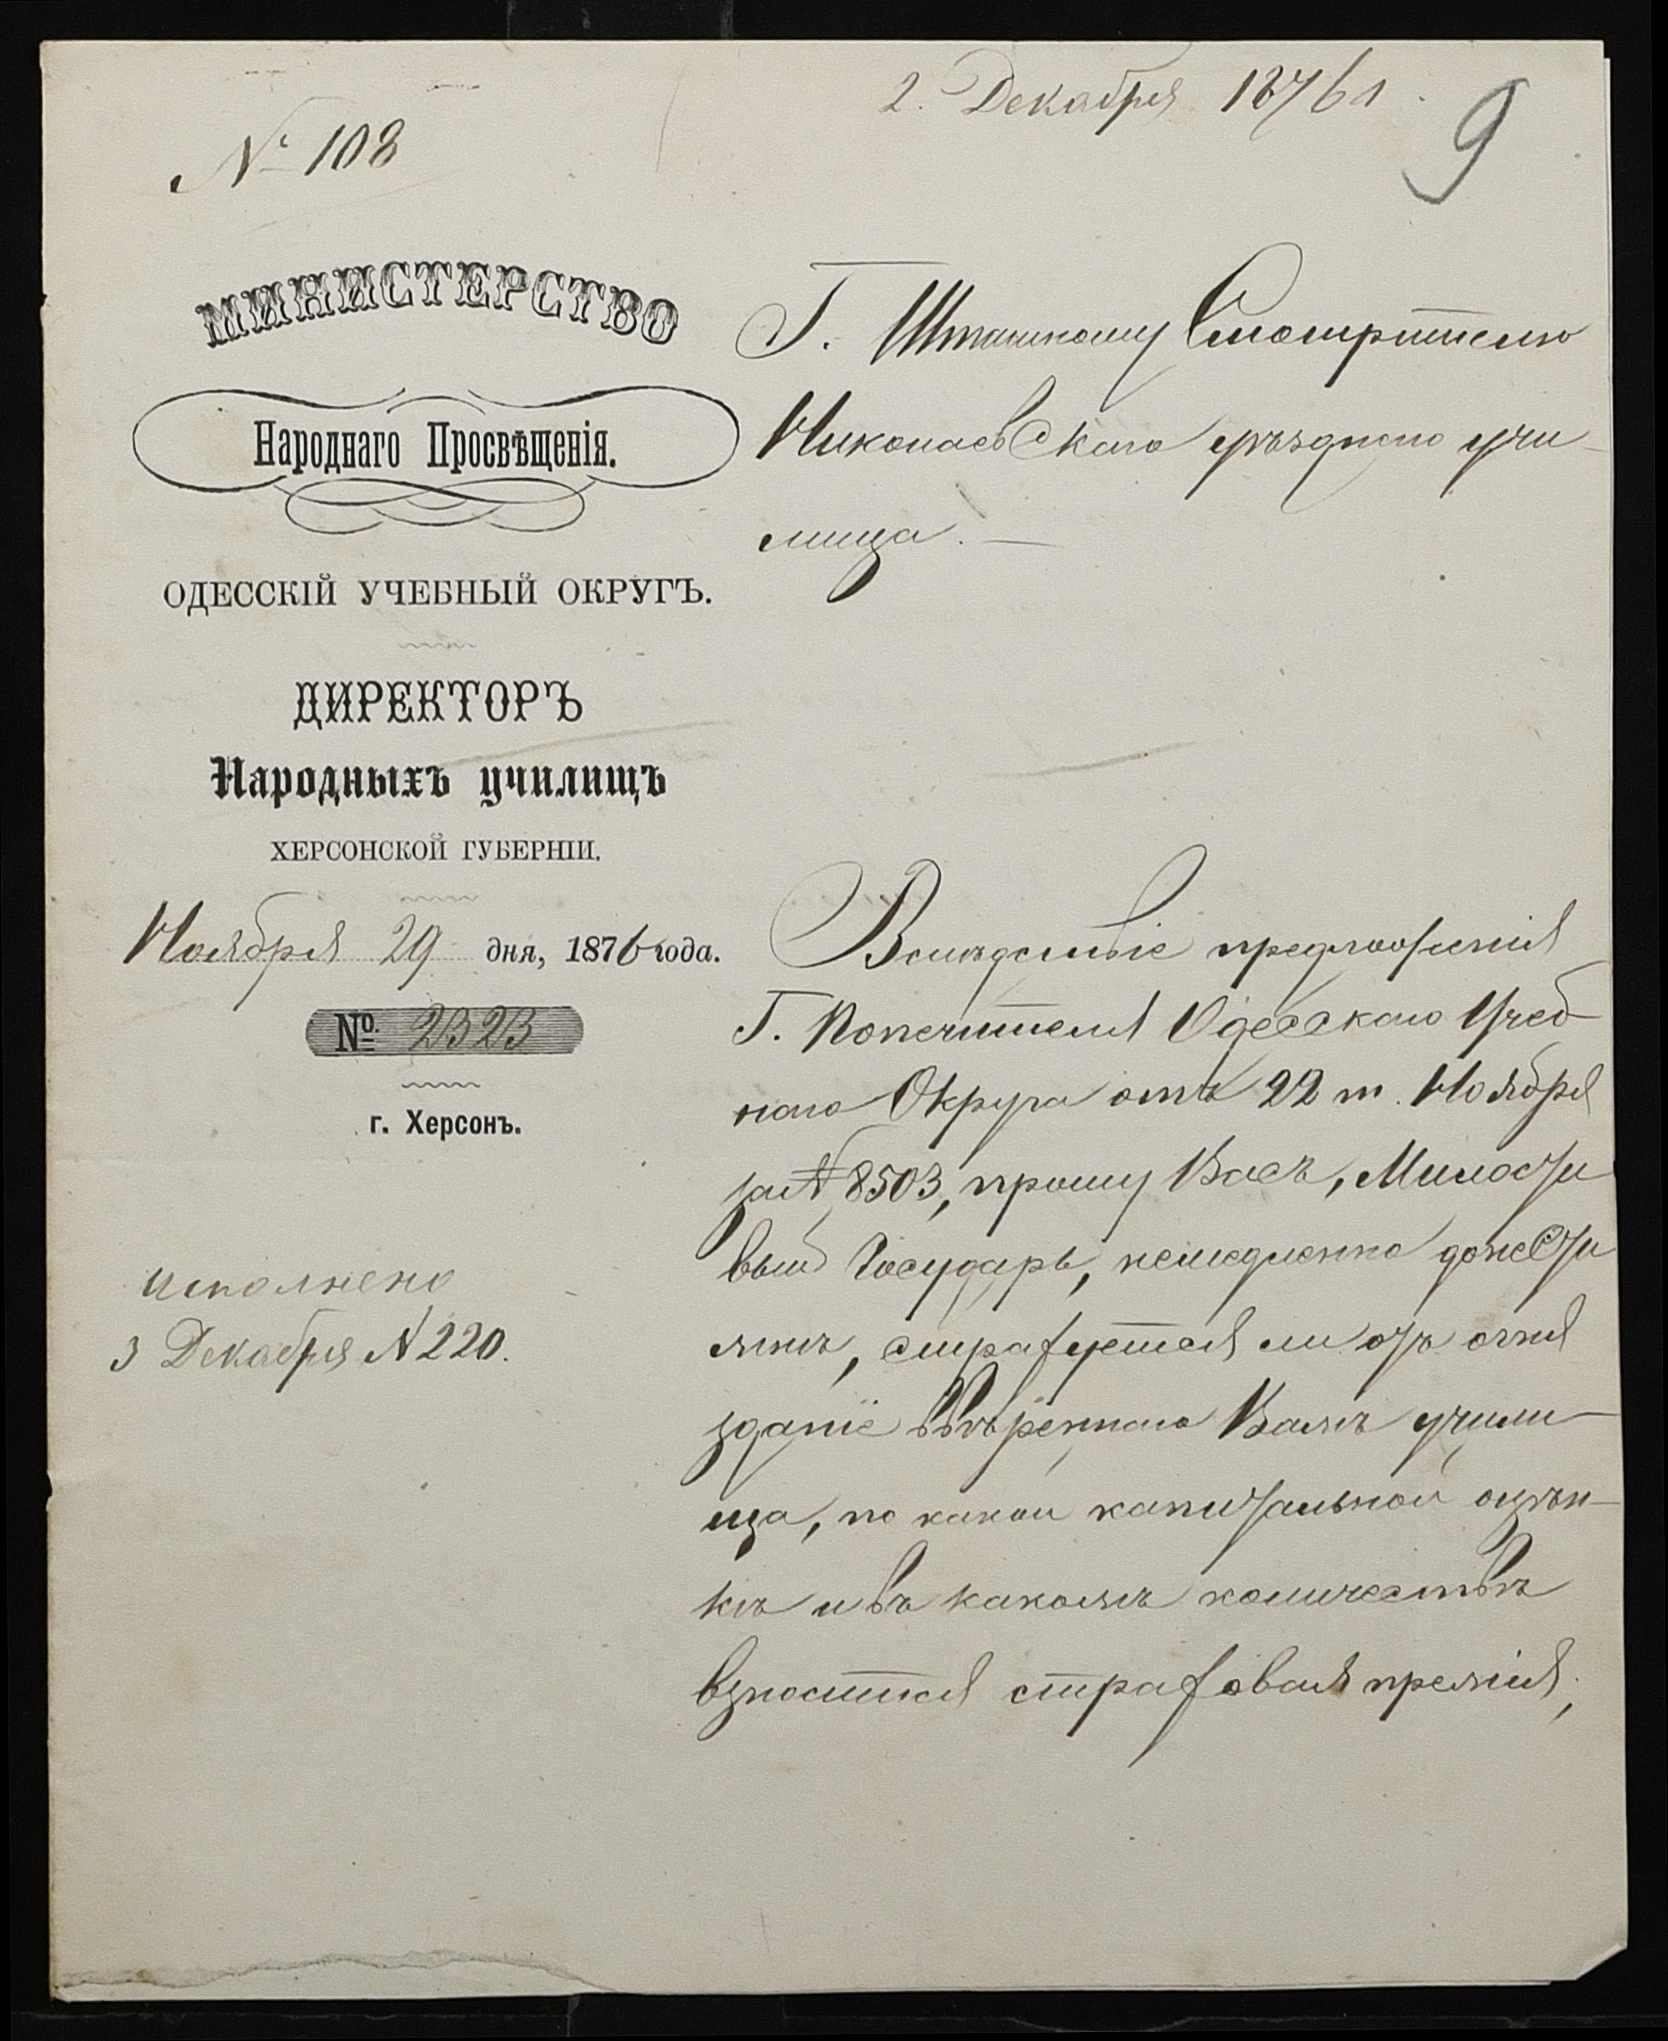 2. Декабря 1876 г.
9
№ 108
МИНИСТЕРСТВО
Народнаго Просвѣщенія.
ОДЕССКІЙ УЧЕБНЫЙ ОКРУГЪ.
ДИРЕКТОРЪ
Народныхъ училищъ
ХЕРСОНСКОЙ ГУБЕРНІИ.
Ноября 29 дня, 1876 года.
№ 2323
г. Херсонъ.
исполнено
3 Декабря N 220.
Г. Штатному Смотрителю
Николаевскаго уѣзднаго учи-
лища. —
Вслѣдствіе предложенія
Г. Попечителя Одесскаго Учеб-
наго Округа отъ 22 т. Ноября
за N 8503, прошу Васъ, Милости
вый Государь, немедленно донести
мнѣ, страхуется ли отъ огня
зданіе ввѣреннаго Вамъ учили-
ща, по какой капитальной оцѣн-
кѣ и въ какомъ количествѣ
взносится страховая премія,